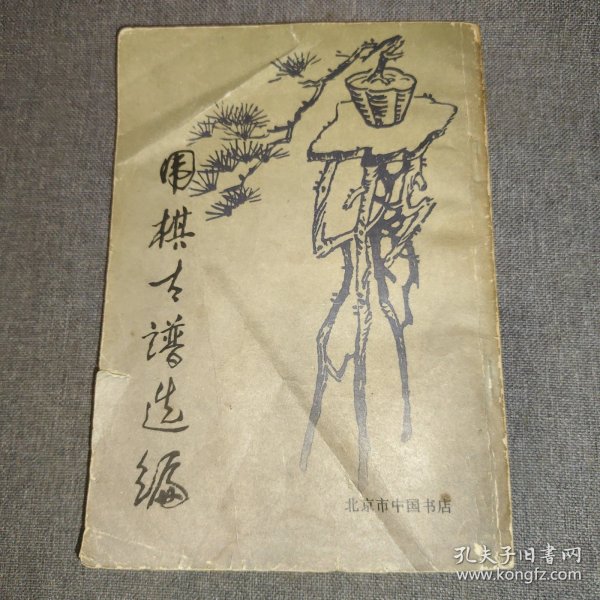 围棋古谱选编
北京市中国书店
孔夫子旧书网
www.kongfz.com